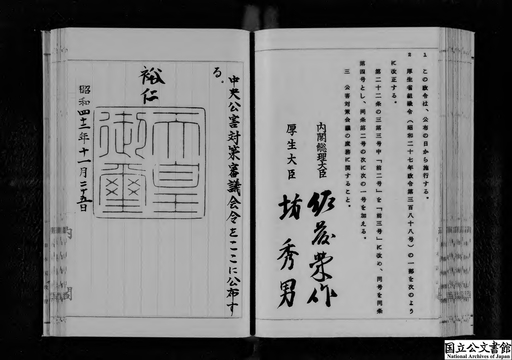 1 この政令は、公布の日から施行する。
2 厚生省組織令（昭和二十七年政令第三百八十八号）の一部を次のよう
に改正する。
第二十二条の三第三号中「前二号」を「前三号」に改め、同号を同条
第四号とし、同条第二号の次に次の一号を加える。
三 公害対策会議の庶務に関すること。
内閣総理大臣 佐藤栄作
厚生大臣 坊秀男
中央公害対策審議会令をここに公布す
る。
裕仁
天皇
御璽
昭和四十二年十一月二十五日
国立公文書館
National Archives of Japan